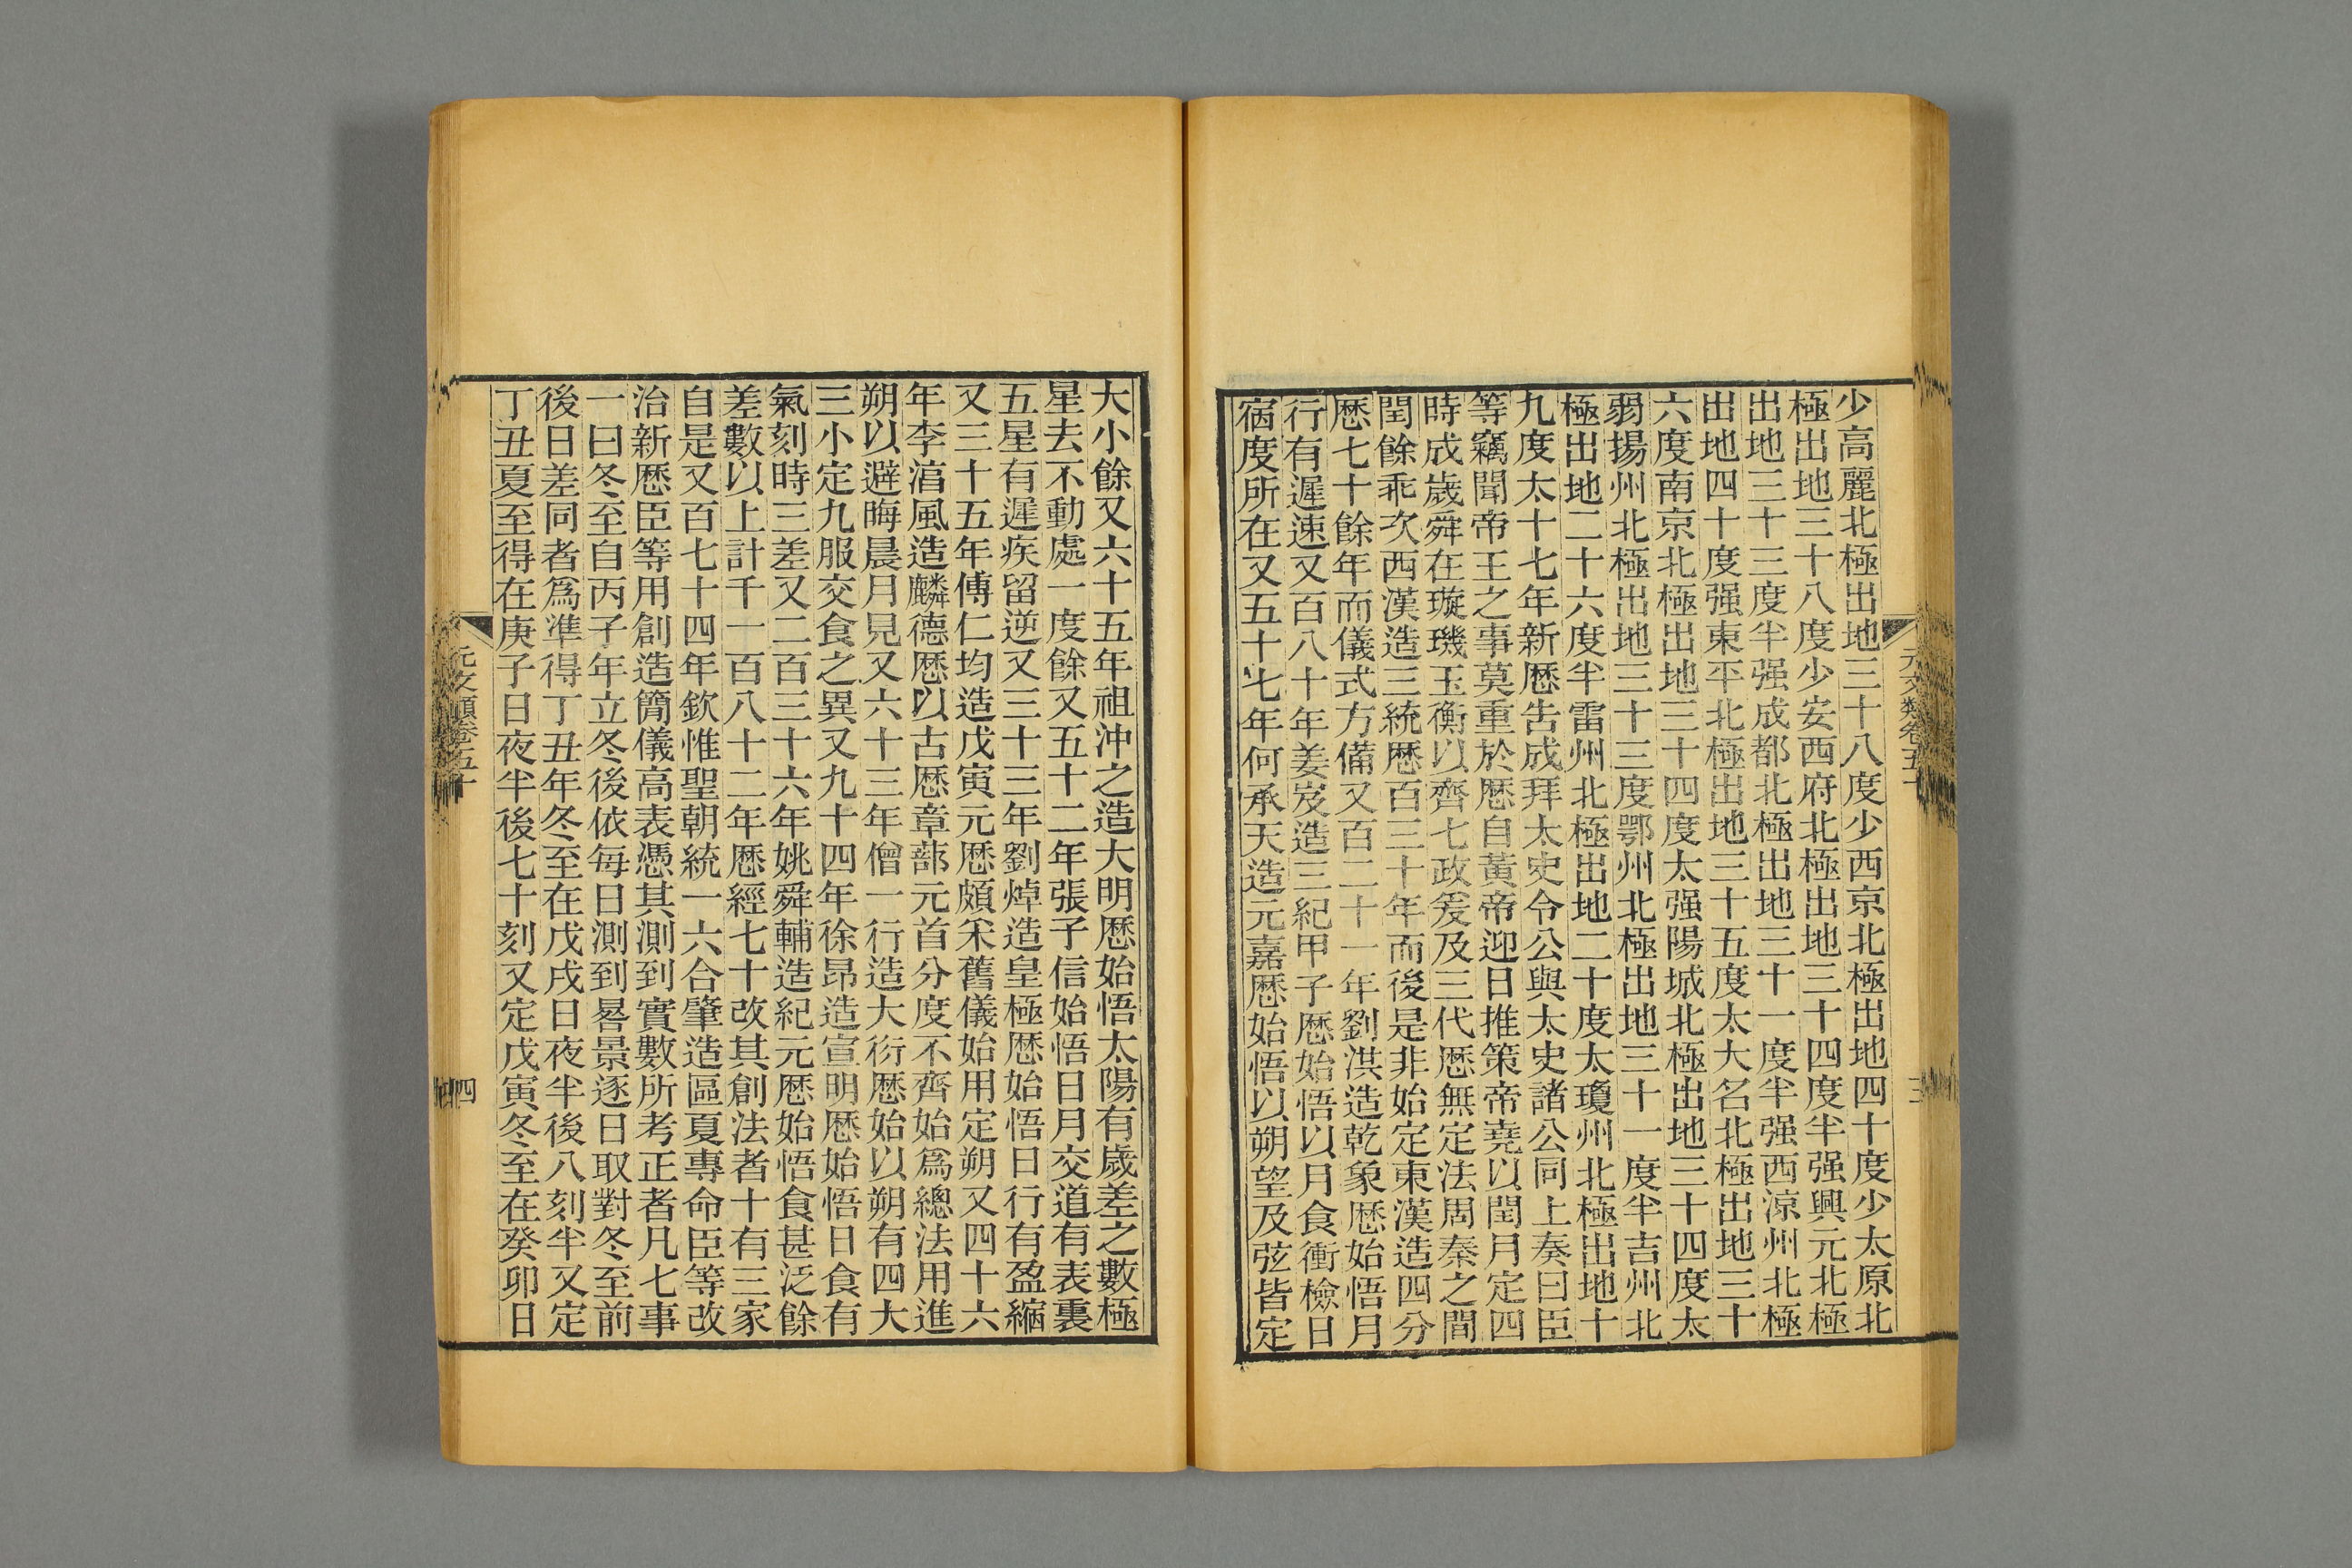 少高麗北極出地三十八度少西京北極出地四十度少太原北
極出地三十八度少安西府北極出地三十四度半强興元北極
出地三十三度半强成都北極出地三十一度半强西涼州北極
出地四十度强東平北極出地三十五度太大名北極出地三十
六度南京北極出地三十四度太强陽城北極出地三十四度太
弱揚州北極出地三十三度鄂州北極出地三十一度半吉州北
極出地二十六度半雷州北極出地二十度太瓊州北極出地十
九度太十七年新厯告成拜太史令公與太史諸公同上奏曰臣
等竊聞帝王之事莫重於厯自黃帝迎日推策帝堯以閏月定四
時成歲舜在璇璣玉衡以齊七政爰及三代厯無定法周秦之間
閏餘乖次西漢造三統厯百三十年而後是非始定東漢造四分
厯七十餘年而儀式方備又百二十一年劉洪造乾象厯始悟月
行有遲速又百八十年姜岌造三紀甲子厯始悟以月食衝檢日
宿度所在又五十七年何承天造元嘉厯始悟以朔望及弦皆定
元文類卷五十
三
大小餘又六十五年祖沖之造大明厯始悟太陽有歲差之數極
星去不動處一度餘又五十二年張子信始悟日月交道有表裏
五星有遲疾留逆又三十三年劉焯造皇極厯始悟日行有盈縮
又三十五年傅仁均造戊寅元厯頗采舊儀始用定朔又四十六
年李淳風造麟德厯以古厯章蔀元首分度不齊始爲總法用進
朔以避晦晨月見又六十三年僧一行造大衍厯始以朔有四大
三小定九服交食之異又九十四年徐昂造宣明厯始悟日食有
氣刻時三差又二百三十六年姚舜輔造紀元厯始悟食甚泛餘
差數以上計千一百八十二年厯經七十改其創法者十有三家
自是又百七十四年欽惟聖朝統一六合肇造區夏專命臣等改
治新厯臣等用創造簡儀高表憑其測到實數所考正者凡七事
一曰冬至自丙子年立冬後依每日測到晷景逐日取對冬至前
後日差同者爲準得丁丑年冬至在戊戌日夜半後八刻半又定
丁丑夏至得在庚子日夜半後七十刻又定戊寅冬至在癸卯日
元文類卷五十
四